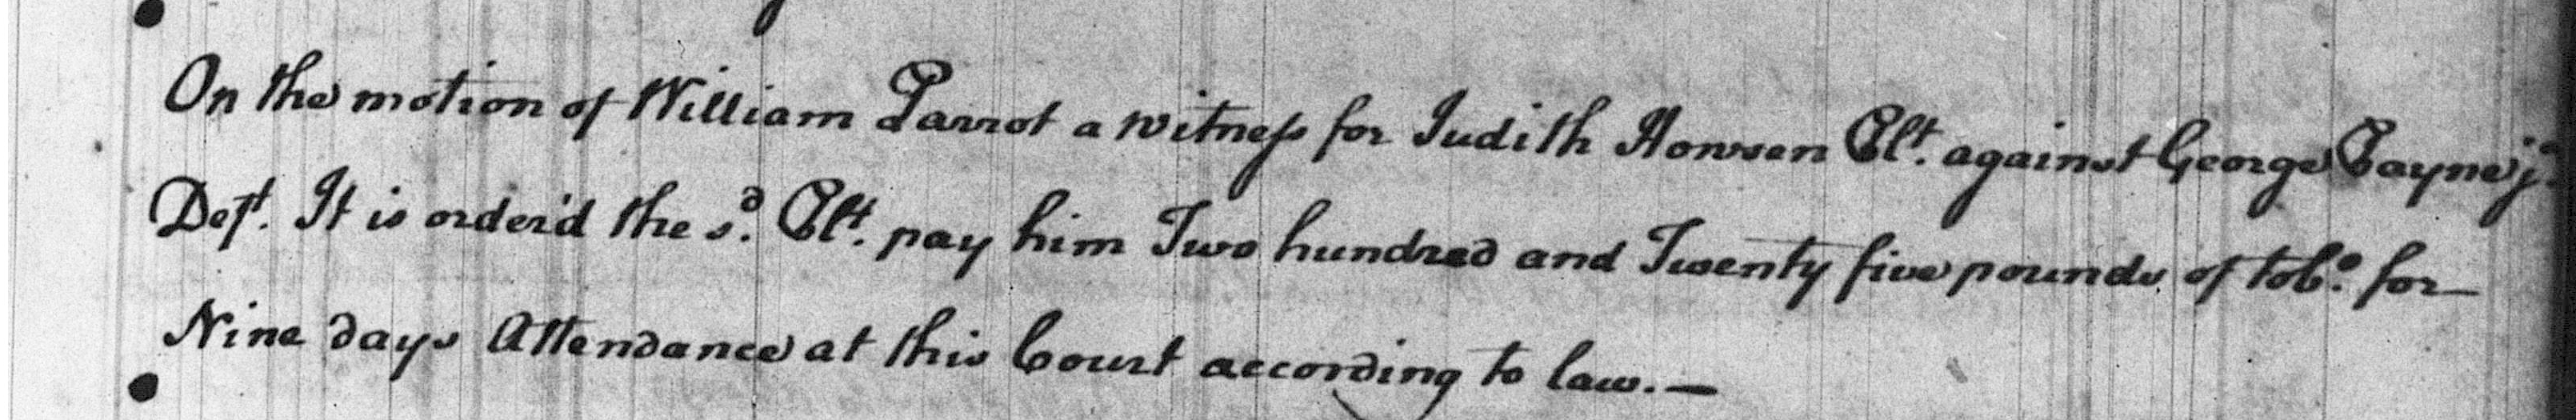 On the motion of William Parrot a witness for Judith Howson Plt. against George Payne jr.
Deft. It is order'd the sd. Plt. pay him Two hundred and Twenty five pounds of tobo. for
Nine days Attendance at this Court according to law.—